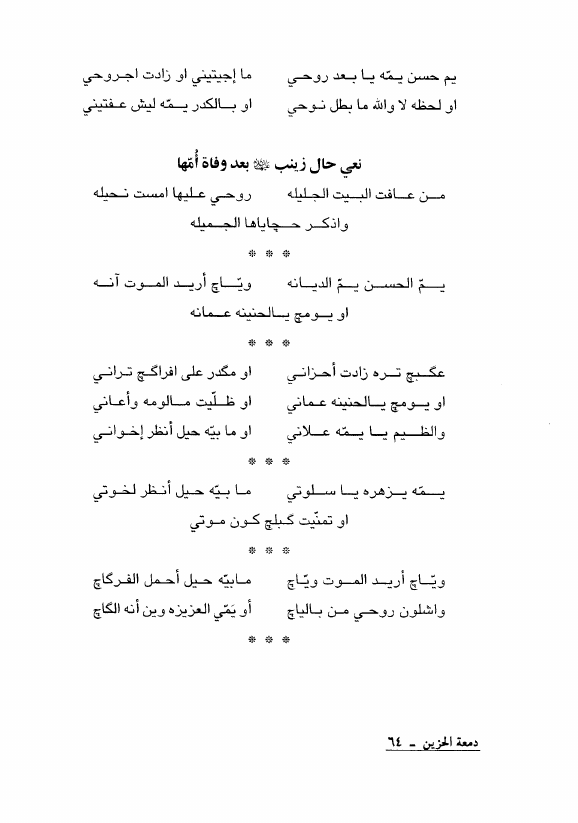 يم حسن يمّه يا بعد روحي ما إجيتيني او زادت اجروحي
او لحظه لا والله ما بطل نوحي او بالكدر يمّه ليش عفتيني
نعي حال زينب بعد وفاة أُمّها
من عافت البيت الجليله روحي عليها امست نحيله
واذكر حچاياها الجميله
* * *
يمّ الحسن يمّ الديانه ويّاچ أريد الموت آنه
او يومچ يالحنينه عمانه
* * *
عگبچ تره زادت أحزاني او مگدر على افراگچ تراني
او يومچ يالحنينه عماني او ظلّيت مالومه وأعاني
والظيم يا يمّه علاني او ما بيّه حيل أنظر إخواني
* * *
يمّه يزهره يا سلوتي ما بيّه حيل أنظر لخوتي
او تمنّيت گبلچ كون موتي
* * *
ويّاچ أريد الموت ويّاچ مابيّه حيل أحمل الفرگاچ
واشلون روحي من بالياچ أو يَمّي العزيزه وين أنه الگاچ
* * *
دمعة الحزين - ٦٤